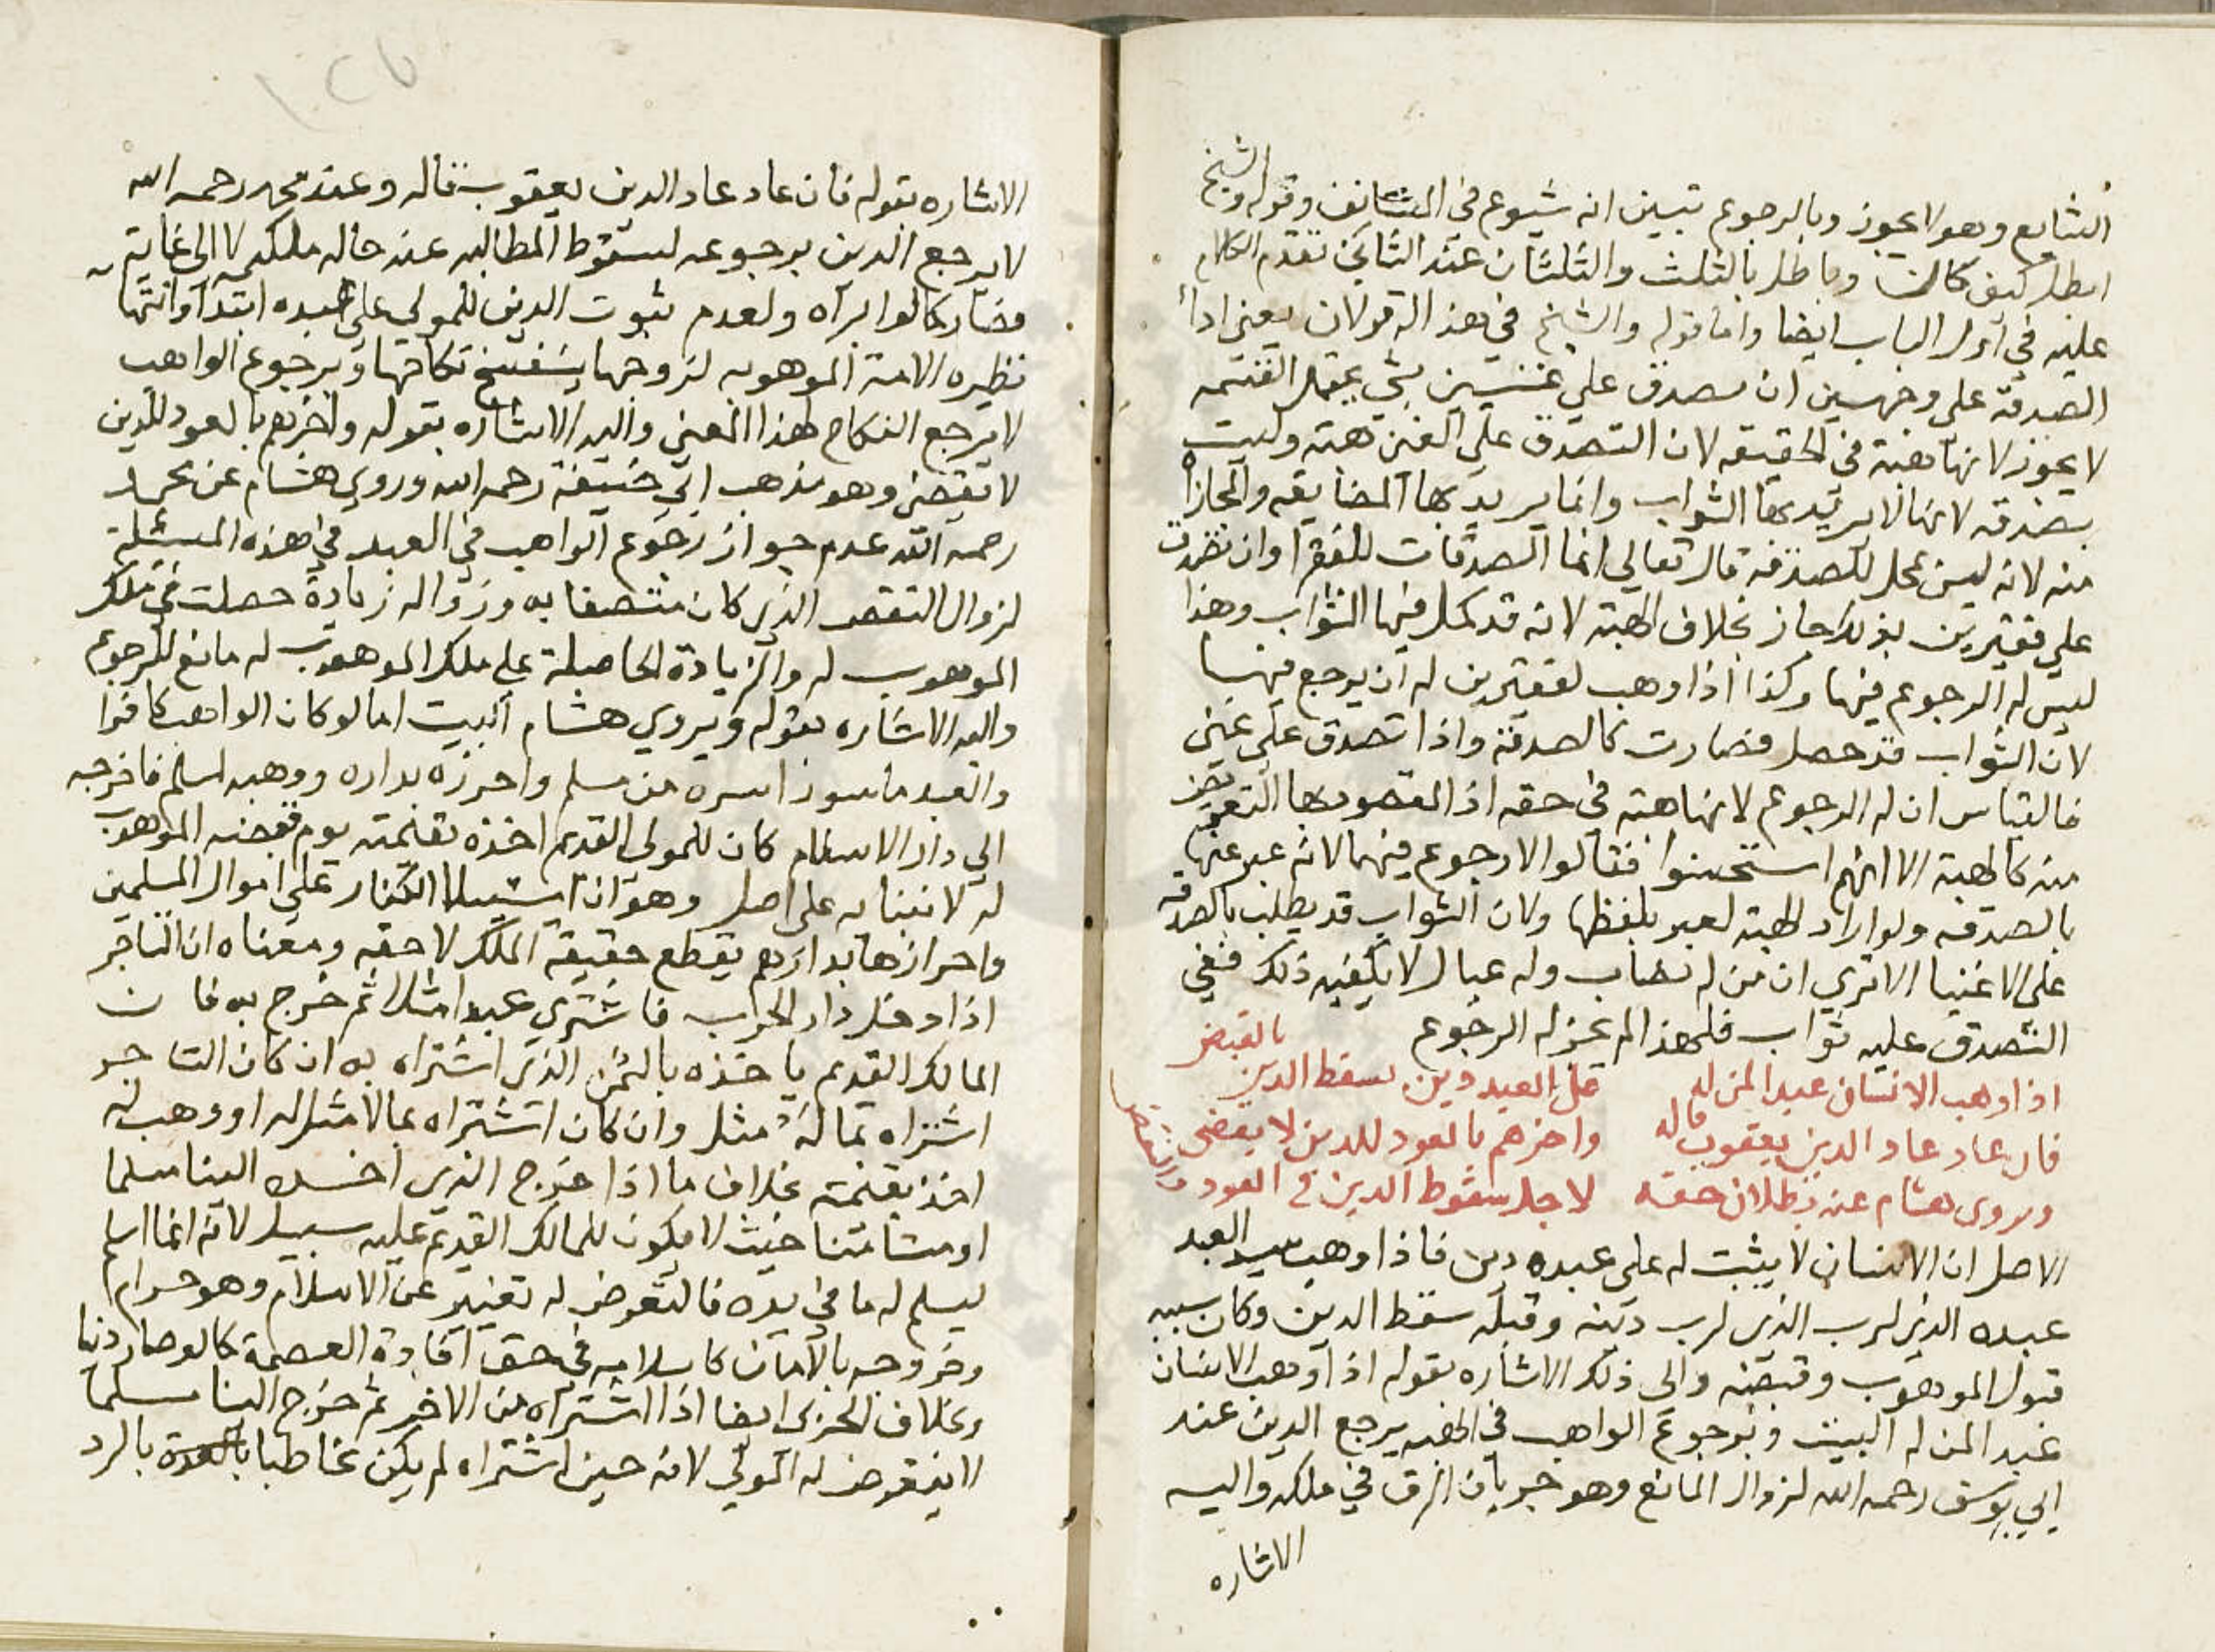 الشايع وهو لا يجوز وبالرجوع تبين انه شيوع في الثاني وقوله والشيخ
ابطل كيف كانت وباطل بالثلث والثلثان عند الثاني تقدم الكلام
عليه في اول الباب ايضا واما قوله والشيخ في هذا له قولان يعني اداء
الصدقة على وجهين ان تصدق على غنيين بشي يحتمل القسمه
لا يجوز لانها هبة في الحقيقه لان التصدق على الغني هبة وليست
بصدقه لانها لا يريد بها الثواب وانما يريد بها المضايقه والمجازاه
منه لانه ليس بمحل للصدقة قال تعالى انما الصدقات للفقرا وان تصدق
على فقيرين بذلك جاز بخلاف الهبة لانه قد كمل فيها الثواب وهذا
ليس له الرجوع فيها وكذا اذا وهب لفقيرين له ان يرجع فيهبا
لان الثواب قد حصل فصارت كالصدقة واذا تصدق على غني
فالقياس ان له الرجوع لانها هبة في حقه اذ المقصود بها التعويض
منه كالهبة الا انهم استحسنوا فقالوا لا رجوع فيهما لانه عبر عنها
بالصدقه ولو اراد الهبة لعبر بلفظها ولان الثواب قد يطلب بالصدقه
على الاغنيا الا ترى ان من له نصاب وله عيال لا يكفيه ذلك ففي
التصدق عليه ثواب فلهذا لم يجز له الرجوع
اذا وهب الانسان عبدا لمن له على العبد دين سقط الدين بالقبض
فان عاد عاد الدين يعقوب قاله واخرهم بالعود للدين لا يقضي
ويروى هشام عنه بطلان حقه لاجل سقوط الدين في العود
الاصل ان الانسان لا يثبت له على عبده دين فاذا وهب سيد العبد
عبده الذي لرب الذي لرب دينه وقبله سقط الدين وكان سببه
قبول الموهوب وقبضه والى ذلك الاشاره بقوله اذا وهب الانسان
عبدا لمن له البيت وبرجوع الواهب في الهبه يرجع الدين عند
ابي يوسف رحمه الله لزوال المانع وهو جريان الرق في ملكه واليه
الاشاره
الاشاره بقوله فان عاد عاد الدين يعقوب قاله وعند محمد رحمه الله
لا يرجع الدين برجوعه لسقوط المطالبه عند حاله ملكه لا الى غاية
فصار كالابراه ولعدم ثبوت الدين للمولى على عبده ابتدا وانتها
نظيره الامة الموهوبه لزوجها ينفسخ نكاحها وبرجوع الواهب
لا يرجع النكاح لهذا المعنى واليه الاشاره بقوله واخرهم بالعود للدين
لا يقضي وهو مذهب ابي حنيفة رحمه الله وروي هشام عن محمد
رحمه الله عدم جواز رجوع الواهب في العبد في هذه المسئلة
لزوال النقص الذي كان متصفا به وزواله زيادة حصلت في ملك
الموهوب له والزيادة الحاصلة على ملك الموهوب له مانع للرجوع
واليه الاشاره بقوله ويروي هشام البيت اما لو كان الواهب كافرا
والعبد ماسورا اسره من مسلم واحرزه بداره ووهبه لمسلم فاخرجه
الى دار الاسلام كان للمولى القديم اخذه بقيمته يوم قبضه الموهوب
له لابتنايه على اصل وهو ان استيلا الكفار على اموال المسلمين
واحرازها بدارهم يقطع حقيقة الملك لا حقه ومعناه ان التاجر
اذا دخل دار الحرب فاشترى عبدا مثلا ثم خرج به فان
المالك القديم ياخذه بالثمن الذي اشتراه به ان كان التاجر
اشتراه بما له مثل وان كان اشتراه بما لا مثل له او وهب له
اخذ بقيمته بخلاف ما اذا خرج الذي اخذه الينا مسلما
او مستامنا حيث لا يكون للمالك القديم عليه سبيل لانه انما اسلم
ليسلم له ما في يده فالتعرض له تغيير عن الاسلام وهو حرام
وخروجه بالامان كاسلامه في حق افادة العصمة كالوصار ذميا
وبخلاف الحربي ايضا اذا اشتراه من الاخر ثم خرج الينا مسلما
لا يتعرض له المولى لانه حين اشتراه لم يكن مخاطبا بالرد